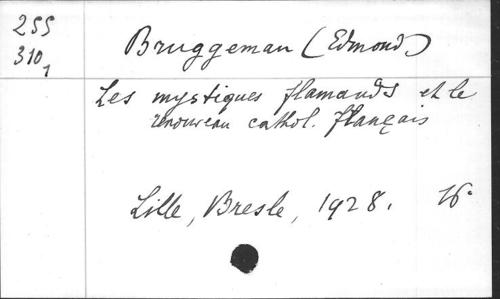 255
310,1
Bruggeman (Edmond)
Les mystiques flamands et le
renouveau cathol. français
Lille, Bresle, 1928. 16°